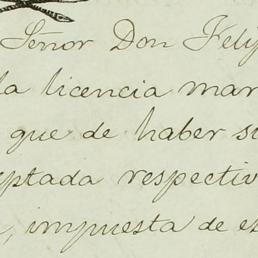 Señor Don Felip
la licencia mar
que de haber su
ptada respectiv
, impuesta de es